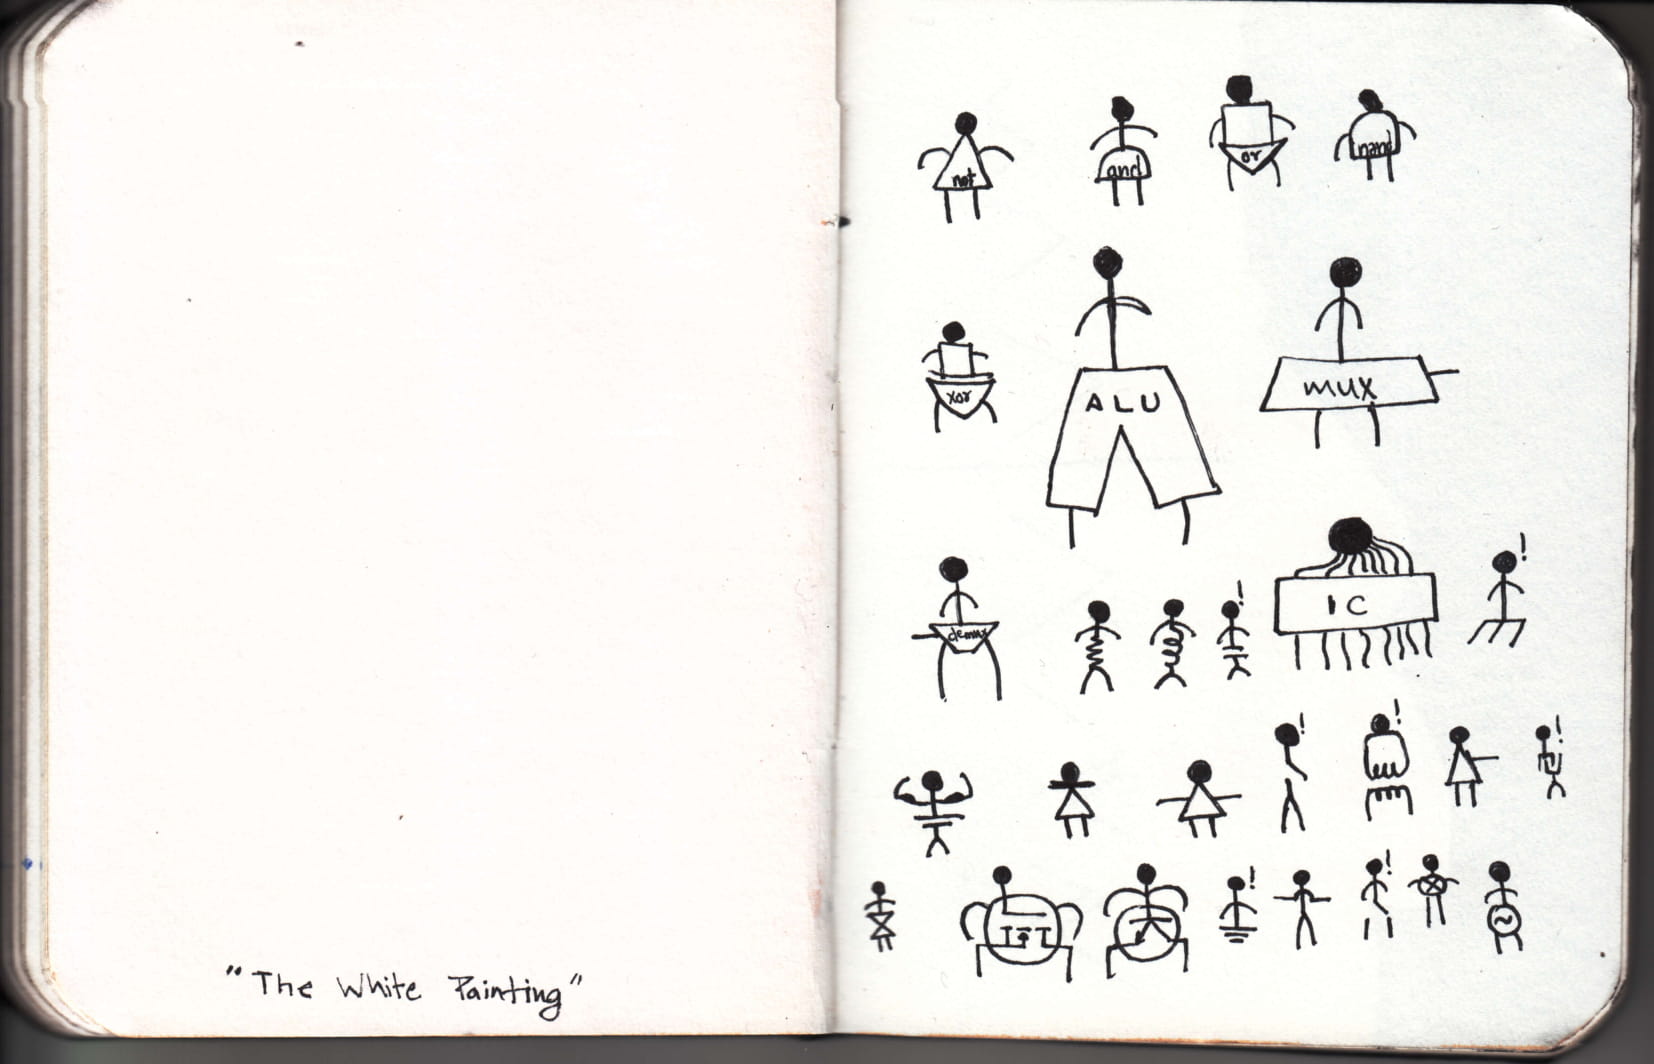 "The White Painting"
not
and
or
nand
xor
ALU
mux
demux
!
IC
!
!
!
!
!
!
~